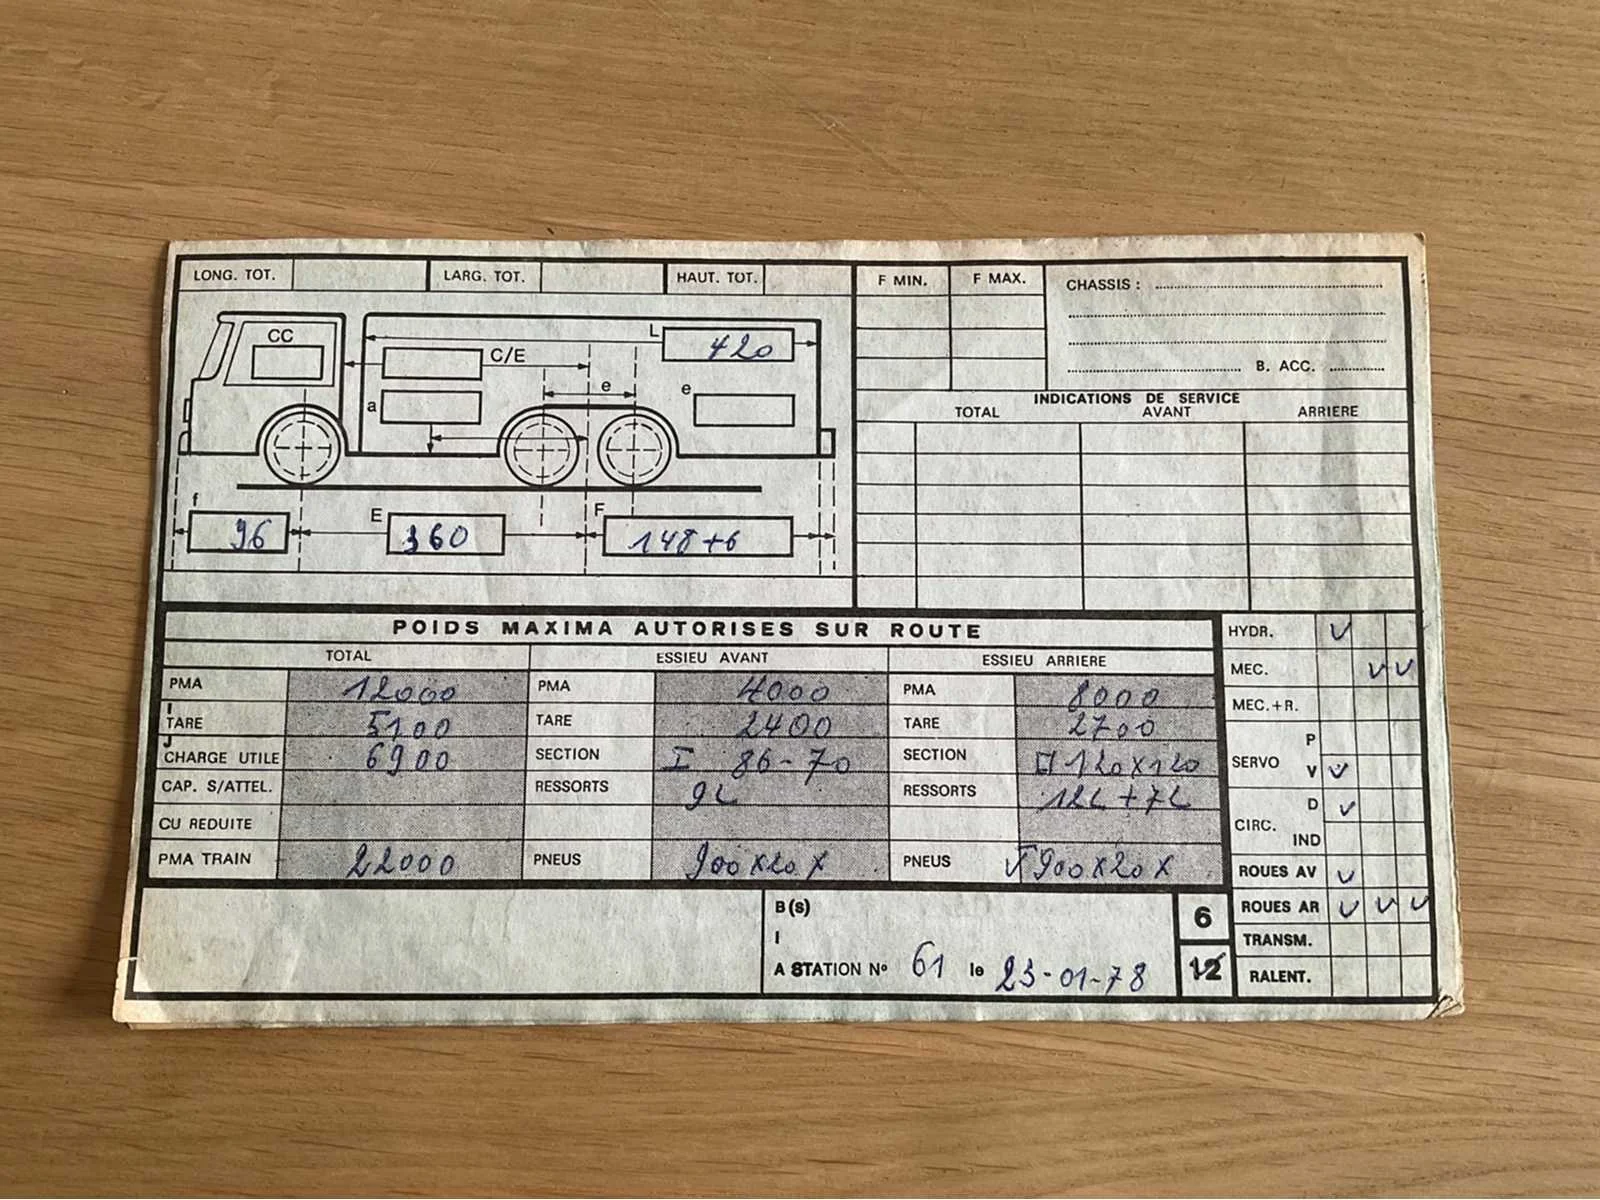 LONG. TOT. LARG. TOT. HAUT. TOT. F MIN. F MAX. CHASSIS :
CC
L 420
C/E
B. ACC.
e
a
e
INDICATIONS DE SERVICE
TOTAL AVANT ARRIERE
f E F
96 360 148+6
POIDS MAXIMA AUTORISES SUR ROUTE
TOTAL ESSIEU AVANT ESSIEU ARRIERE
PMA 12000 PMA 4000 PMA 8000
I
TARE 5100 TARE 2400 TARE 2700
J
CHARGE UTILE 6900 SECTION I 86-70 SECTION 120x120
CAP. S/ATTEL. RESSORTS 9L RESSORTS 12L+7L
CU REDUITE
PMA TRAIN 22000 PNEUS 900x20 X PNEUS 900x20 X
HYDR.
MEC.
MEC.+R.
P
SERVO
V
D
CIRC.
IND
ROUES AV
ROUES AR
TRANSM.
RALENT.
B(s)
I
A STATION No 61 le 23-01-78
6
12